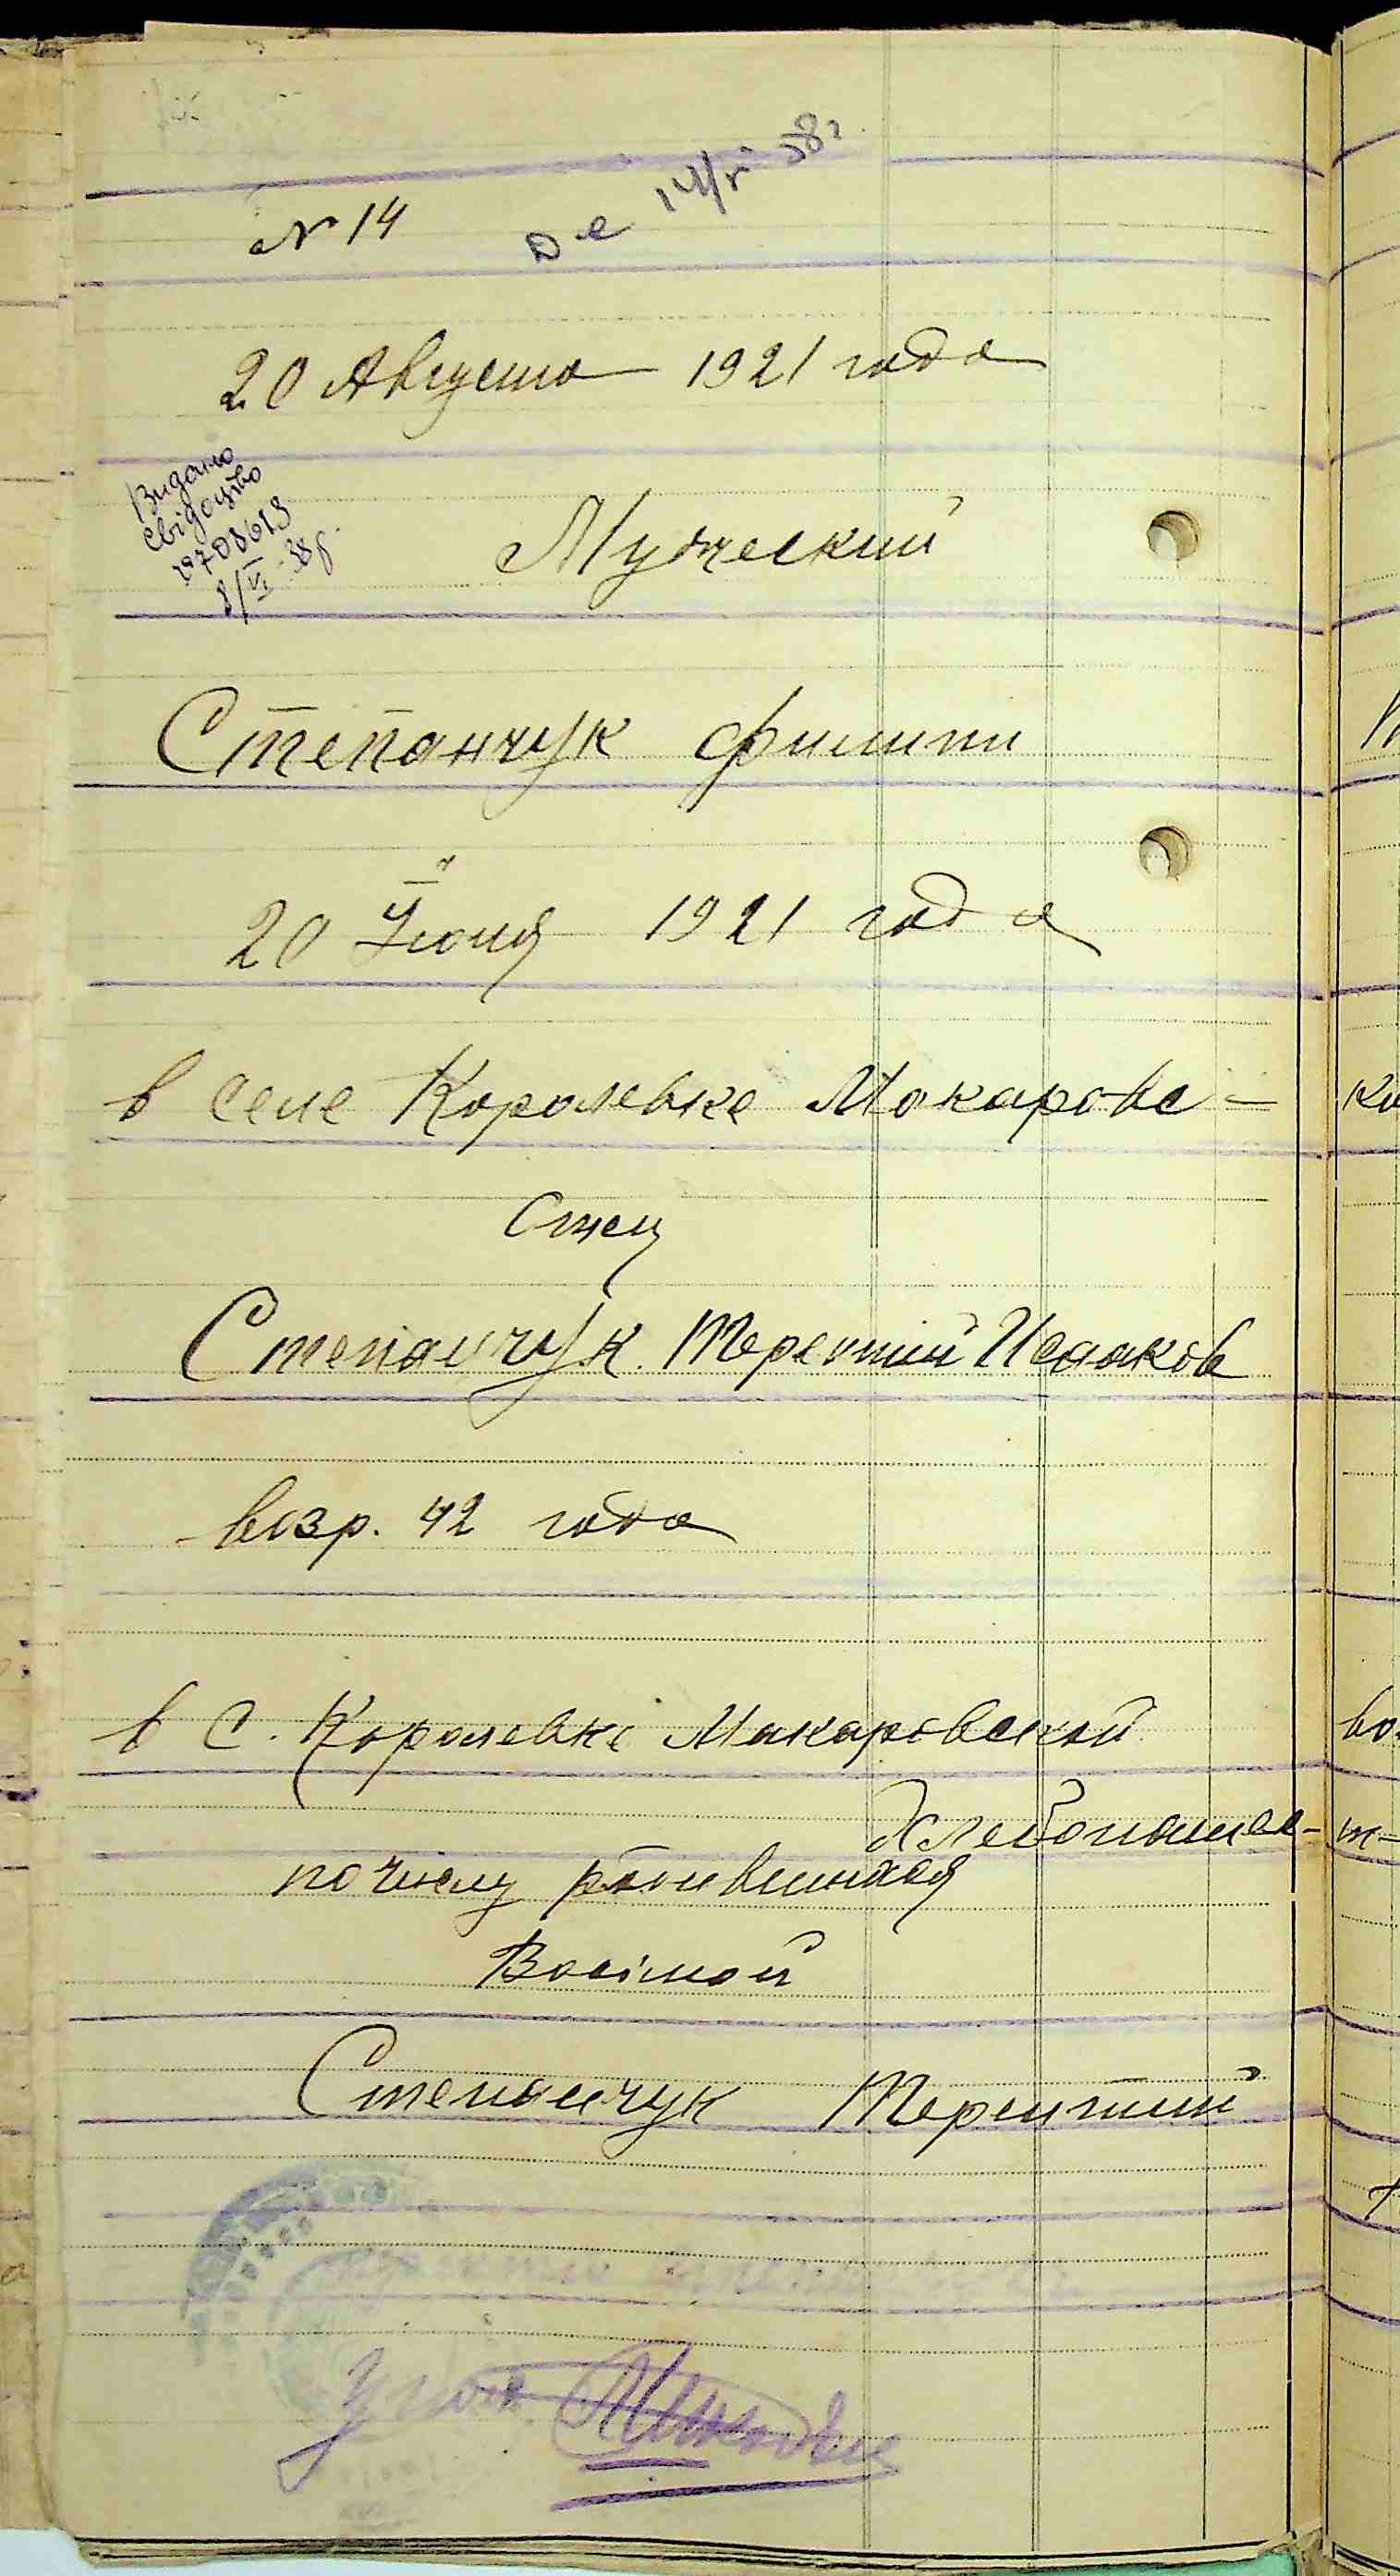 № 14
14/V 38 г.
20 Августа 1921 года
Видано
свідоцтво
8/VI 38 р.
Мужеский
Степанчук Филипп
20 Июня 1921 года
в селе Королевке Макаровс-
Отец
Степанчук Терентий Исааков
возр. 42 года
в с. Королевке Макаровской
Хлебопашес-
по числу родившихся
Восімой
Степанчук Терентий